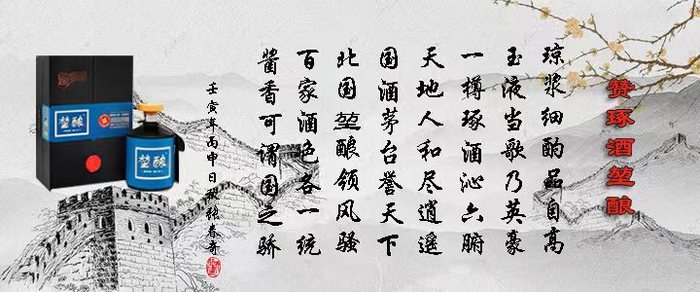 赞琢酒堃酿
琼浆细酌品自高
玉液当歌乃英豪
一樽琢酒沁六腑
天地人和尽逍遥
国酒茅台誉天下
北国堃酿领风骚
百家酒色各一统
酱香可谓国之骄
壬寅年丙申日张春奇
堃酿
堃酿